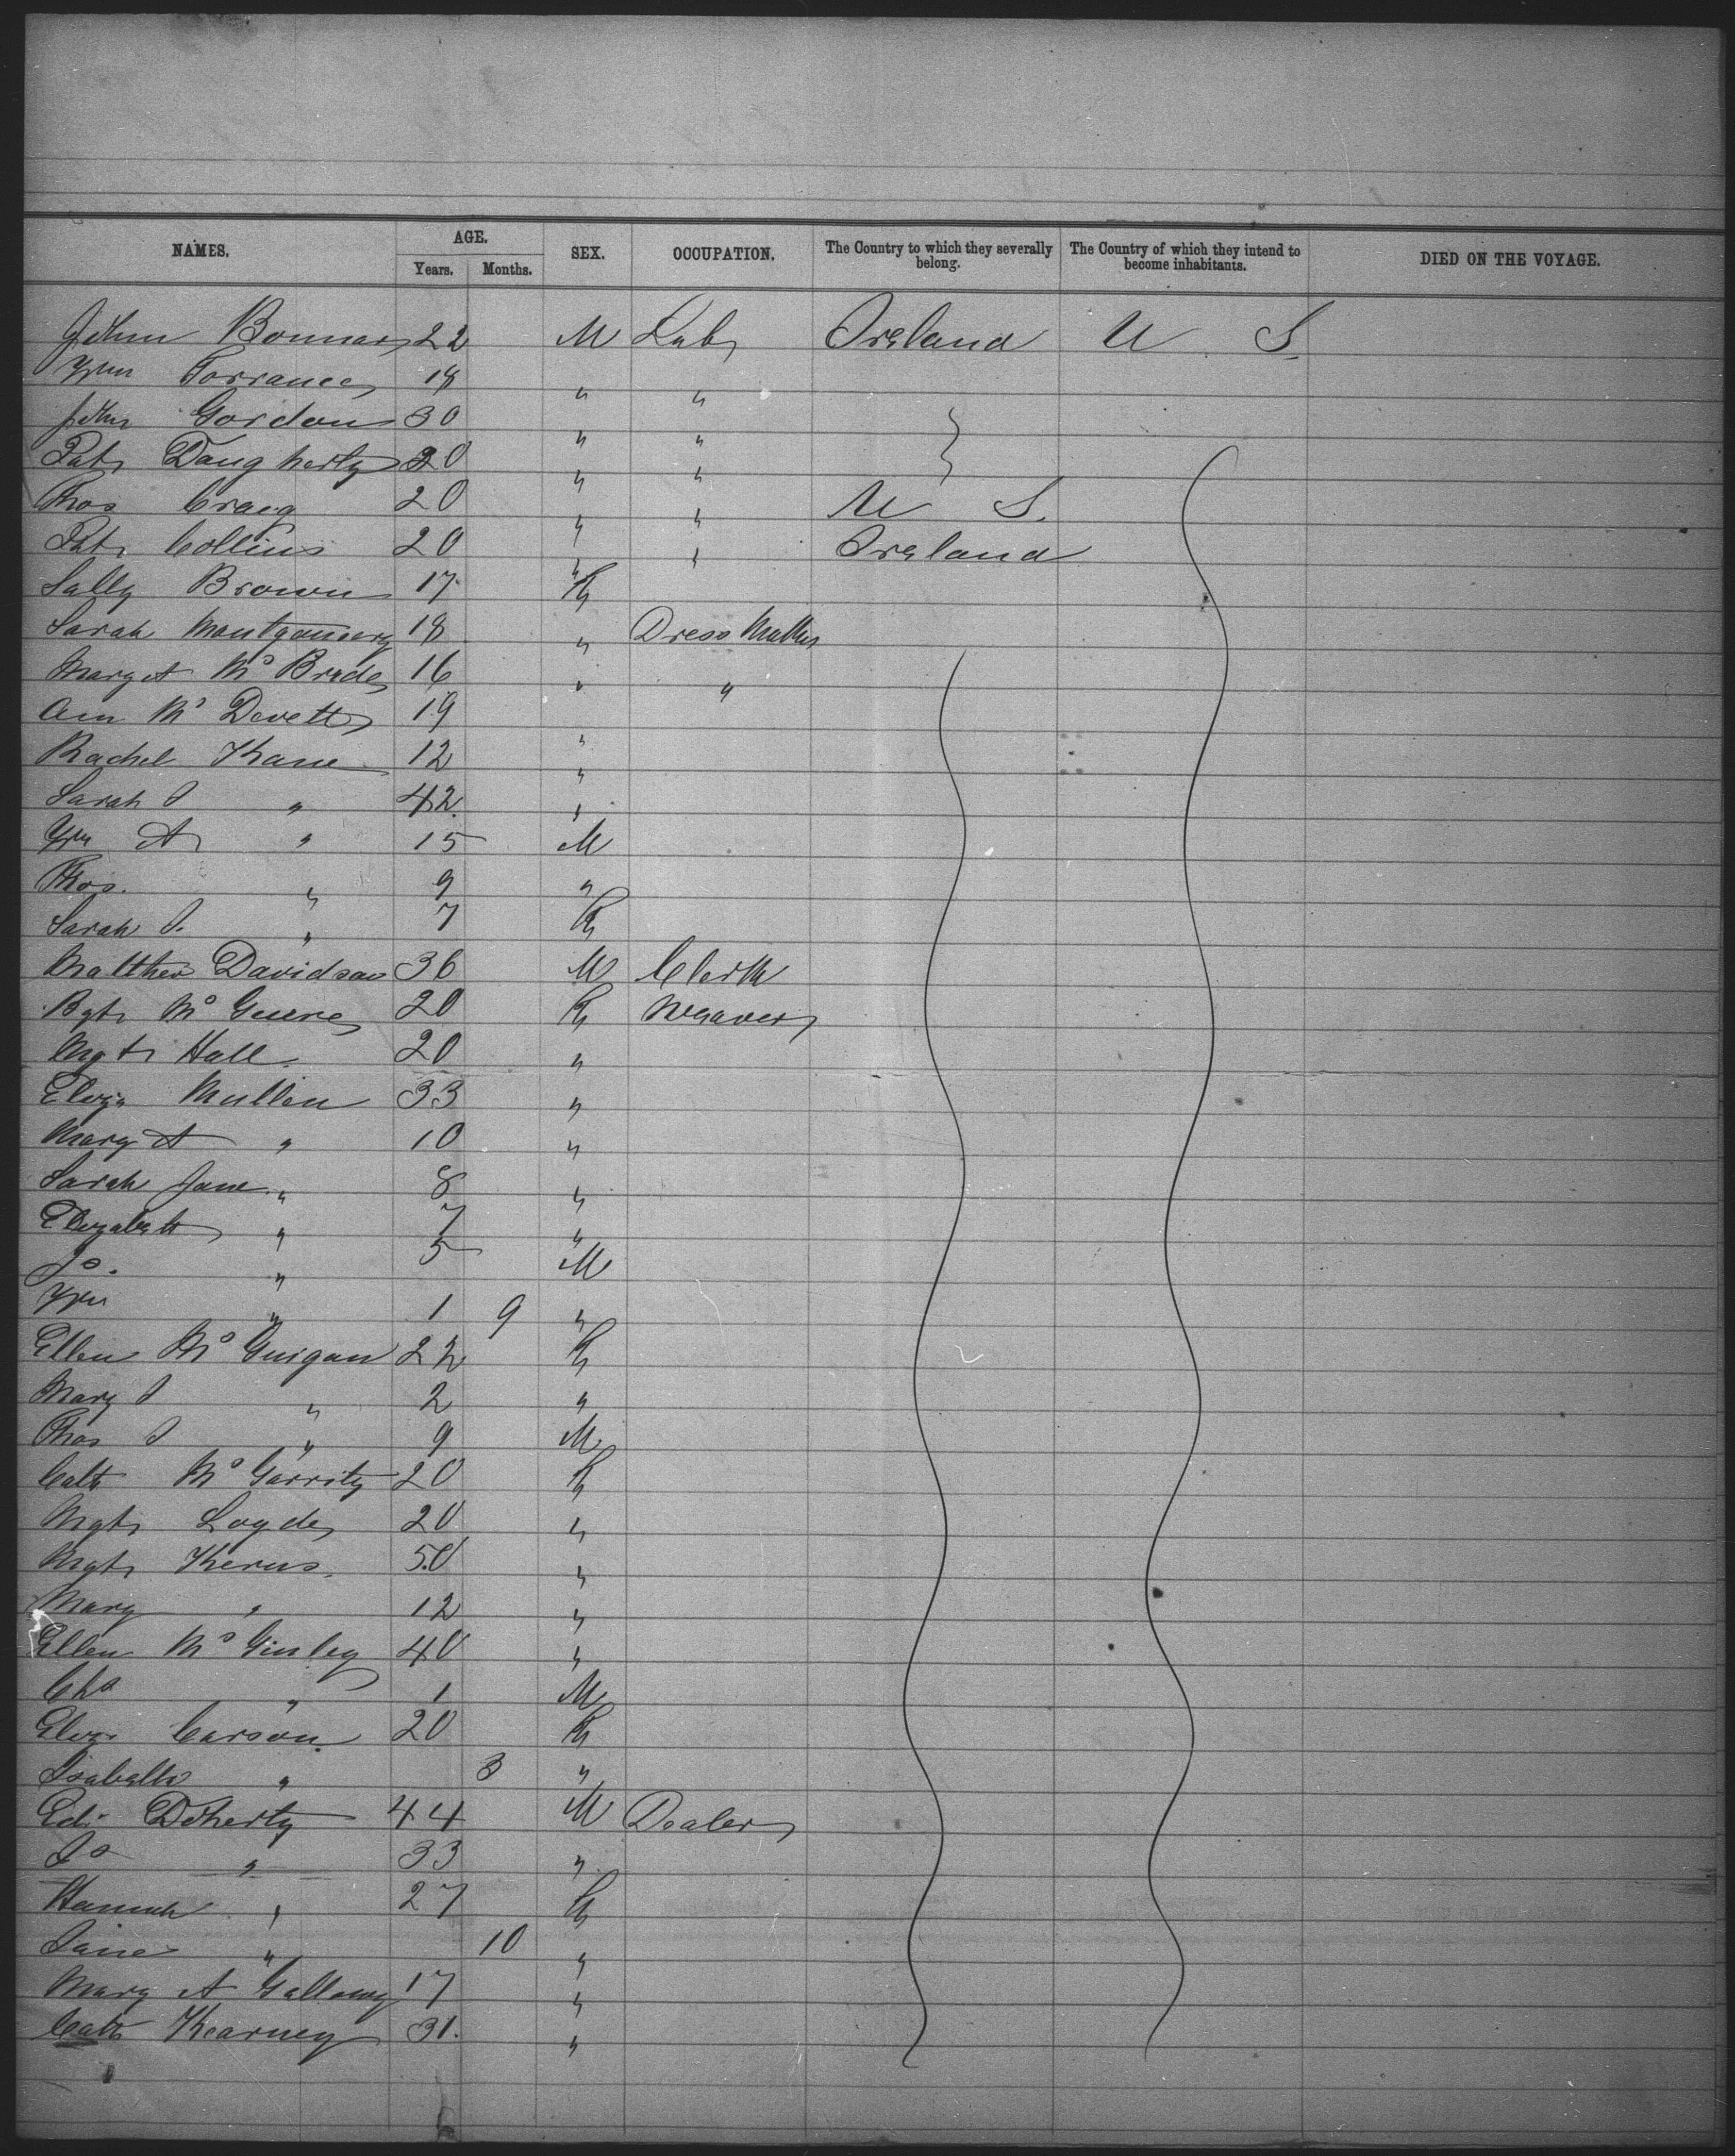 NAMES. AGE. SEX. OCCUPATION. The Country to which they severally belong. The Country of which they intend to become inhabitants. DIED ON THE VOYAGE.
Years. Months.
John Bonnar 22 M Lab Ireland U S.
Wm Torrance 18 " "
John Gordon 30 " "
Patr Daugherty 20 " "
Thos Craig 20 " " U S.
Patr Collins 20 " " Ireland
Sally Brown 17 F
Sarah Montgomery 18 " Dress Maker
Margt Mc Bride 16 " "
Ann Mc Devett 19 "
Rachel Kane 12 "
Sarah J " 42 "
Wm A " 15 M
Thos. " 9 "
Sarah J. " 7 F
Matthew Davidson 36 M Clerk
Bgt Mc Guire 20 F Weaver
Mgt Hall 20 "
Eliza Mullen 33 "
Mary A " 10 "
Sarah Jane " 8 "
Elizabeth " 7 "
Jo. " 5 M
Wm " 1 9 "
Ellen Mc Guigan 22 F
Mary J " 2 "
Thos J " 9 M
Cath Mc Garrity 20 F
Mgt Loyde 20 "
Mgt Kerns 50 "
Mary " 12 "
Ellen Mc Ginley 40 "
Chs " 1 M
Eliza Carson 20 F
Isabella " 3 "
Ed. Doherty 44 M Dealer
Jo " 33 "
Hannah " 27 F
Jane " 10 "
Mary A Galloway 17 "
Cath Kearney 31. "